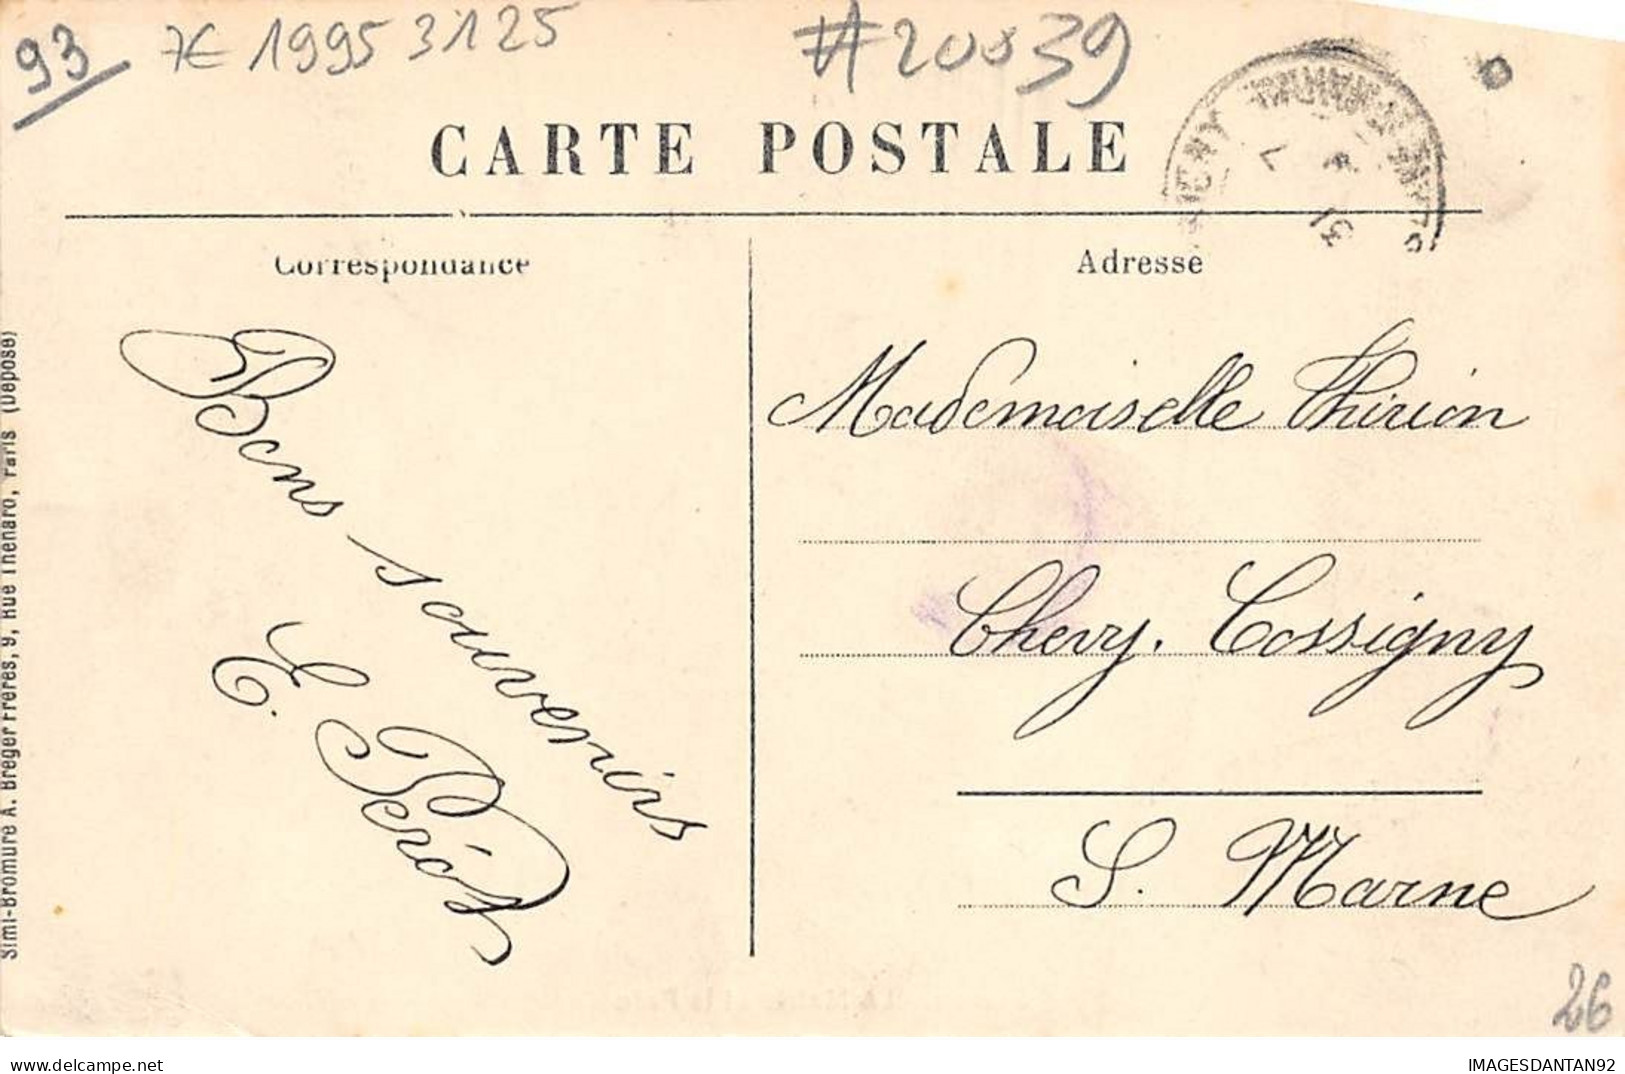 93
7€ 1995 3125
#20039
CARTE POSTALE
Correspondance
Adresse
Bons souvenirs
E. Pérot
Mademoiselle Thirion
Chevry. Cossigny
S. Marne
Simi-Bromure A. Breger Frères, 9, Rue Thénard, Paris (Déposé)
26
IMAGESDANTAN92